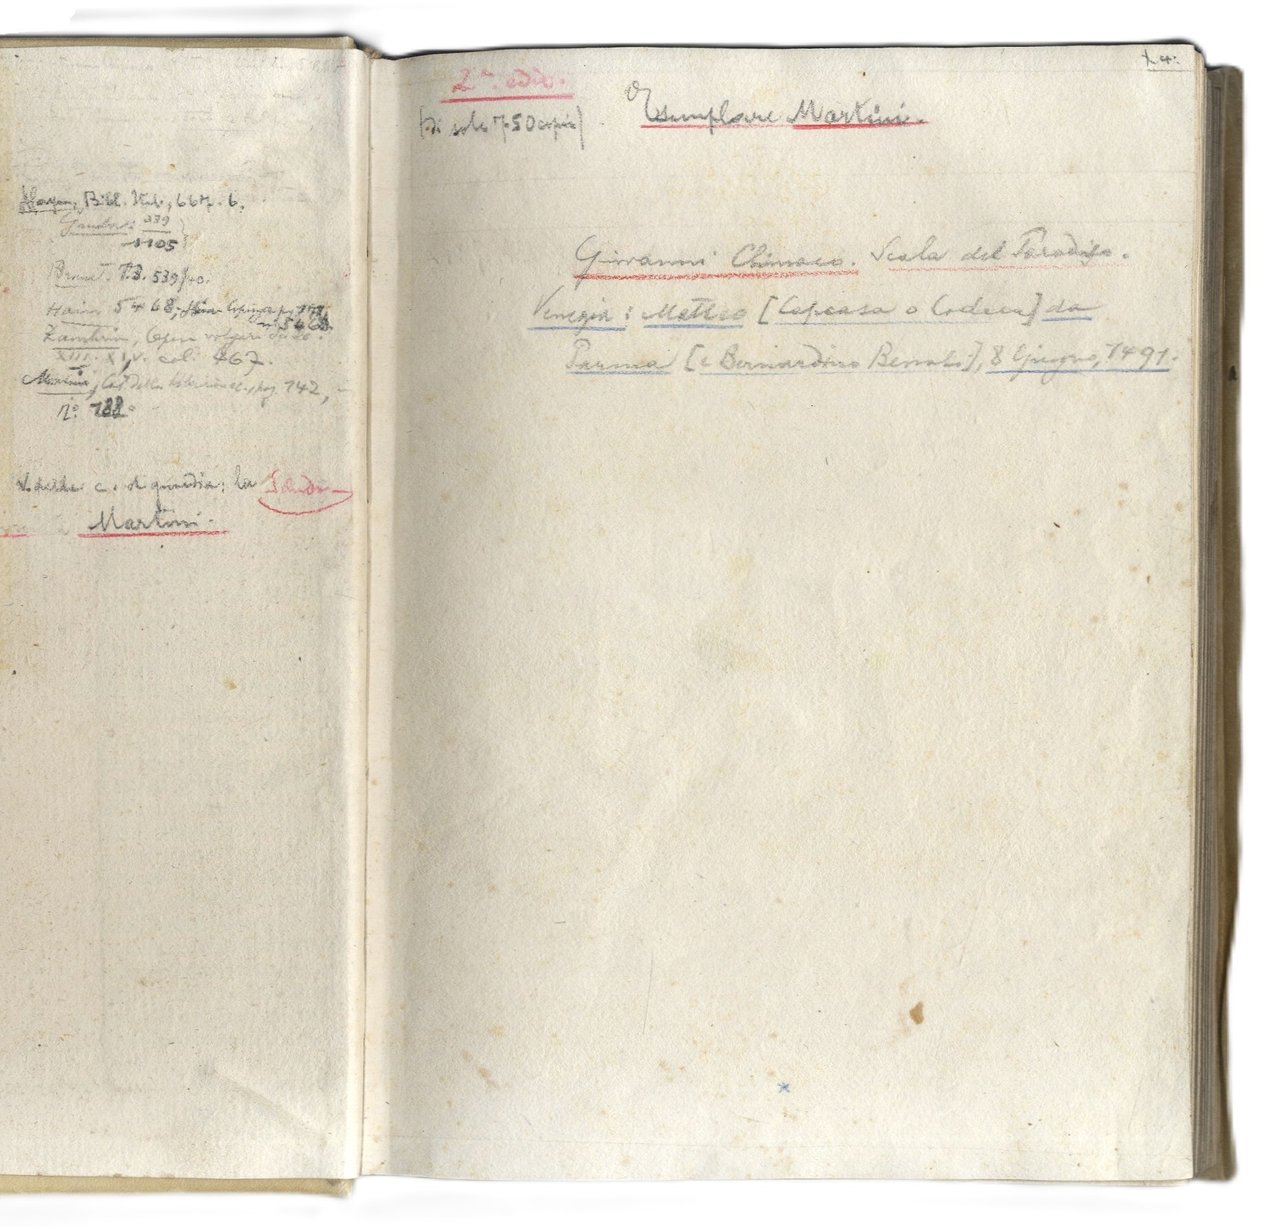 Bibl. Ital., 667. 6.
1105
T.B. 539
Hain 5468,
5468
Zambrini, Opere volgari
XIII. XIV. col. 467.
Cat. della Libreria pag 142,
nº. 188.
V. delle c. di guardia; la
Martini.
2ª. ediz.
[di sole 750 copie]
Esemplare Martini.
Giovanni Climaco. Scala del Paradiso.
Venezia: Matteo [Capcasa o Codeca] da
Parma [e Bernardino Benali], 8 Giugno, 1491.